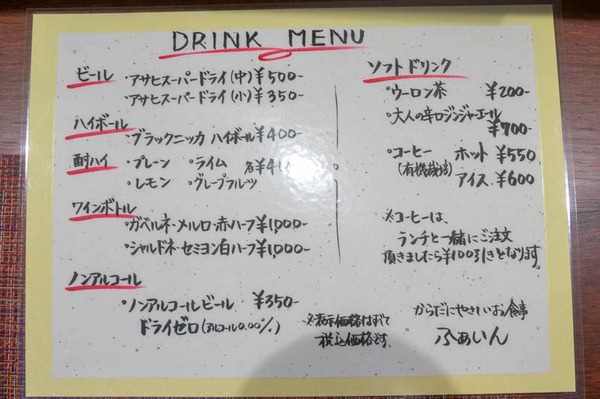 DRINK MENU
ビール
・アサヒスーパードライ(中)¥500-
・アサヒスーパードライ(小)¥350-
ハイボール
・ブラックニッカ ハイボール¥400-
酎ハイ
・プレーン ・ライム 各¥4
・レモン ・グレープフルツ
ワインボトル
・ガベルネ・メルロ・赤ハーフ¥1,000-
・シャルドネ・セミヨン白ハーフ¥1,000-
ノンアルコール
・ノンアルコールビール ¥350-
ドライゼロ(アルコール0.00%)
※表示価格はすべて
税込価格です
ソフトドリンク
・ウーロン茶 ¥200-
・大人の辛口ジンジャーエール
¥700-
・コーヒー ホット ¥550
(有機栽培) アイス ¥600
※コーヒーは、
ランチと一緒にご注文
頂きましたら¥100引きとなります。
からだにやさしいお食事
ふぁいん